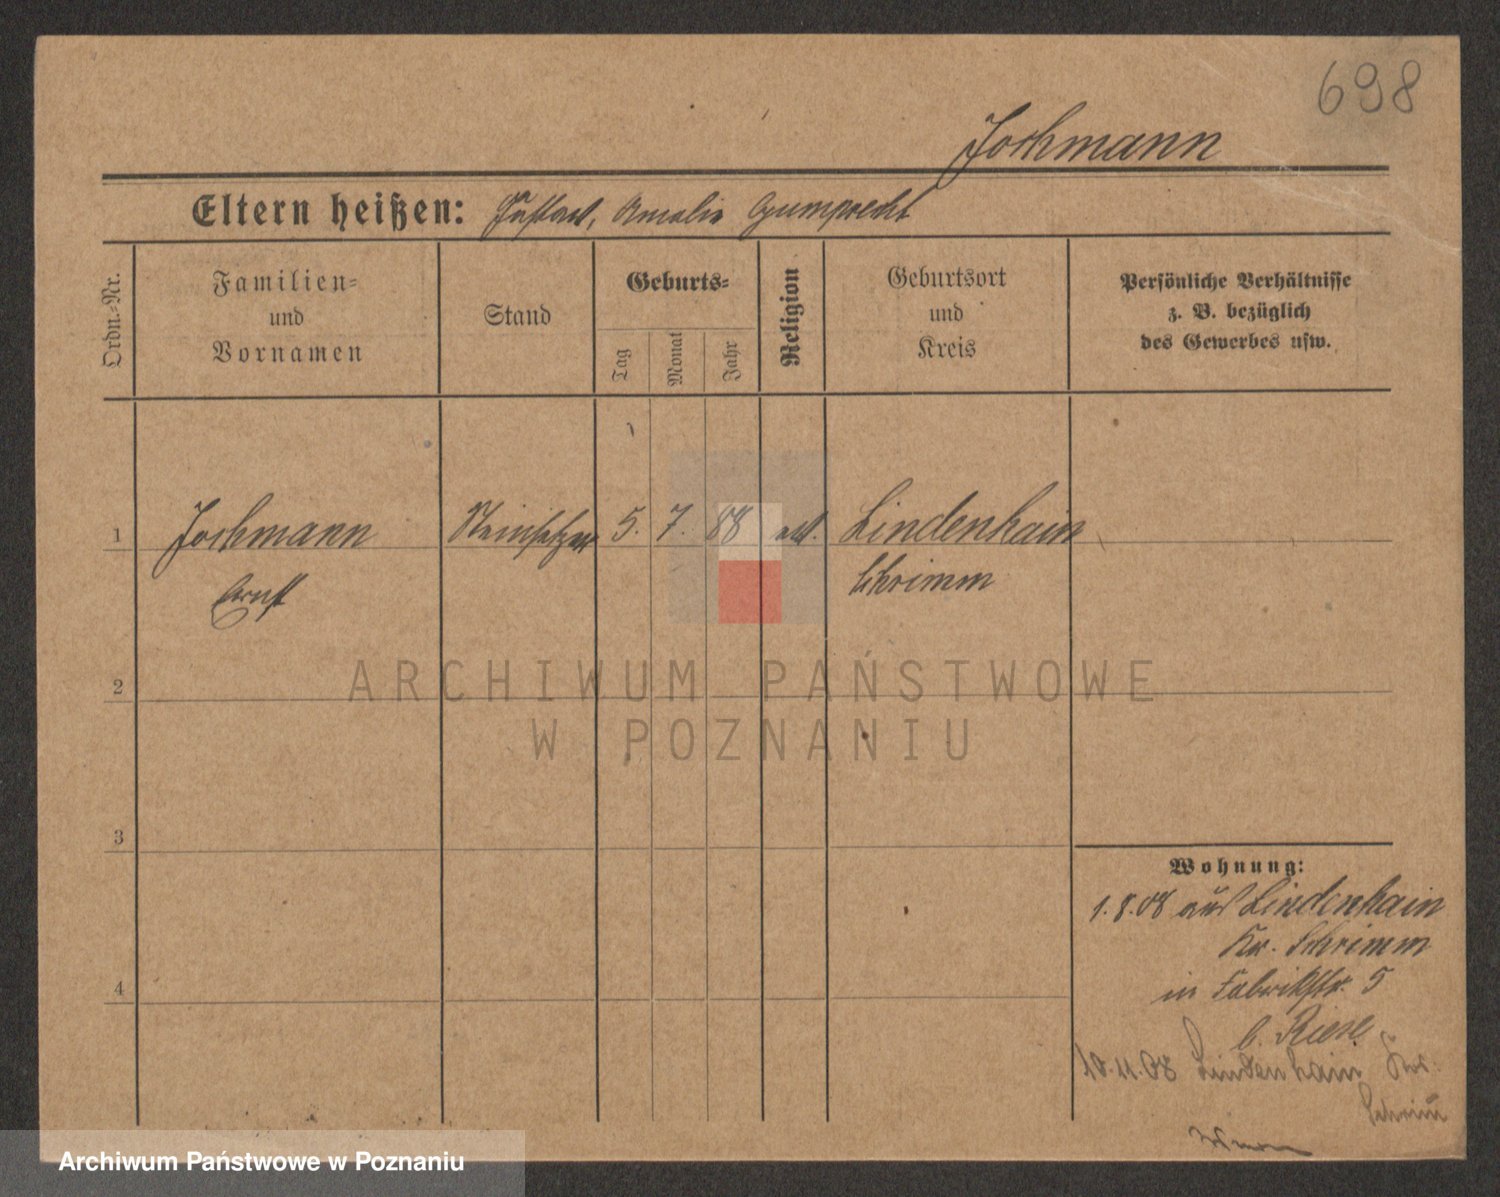 698
Jochmann
Eltern heißen: Gustav, Amalie Gumprecht
Ordn.-Nr.
Familien-
und
Vornamen
Stand
Geburts-
Tag
Monat
Jahr
Religion
Geburtsort
und
Kreis
Persönliche Verhältnisse
z. B. bezüglich
des Gewerbes usw.
1 Jochmann Steinsetzer 5. 7. 88 ev. Lindenhain
Ernst Schrimm
ARCHIWUM PAŃSTWOWE
W POZNANIU
2
3
4
Wohnung:
1.8.08 aus Lindenhain
Kr. Schrimm
in Fabrikstr. 5
b. Riese
10.11.08 Lindenhain Kr.
Schrim̄
Archiwum Państwowe w Poznaniu